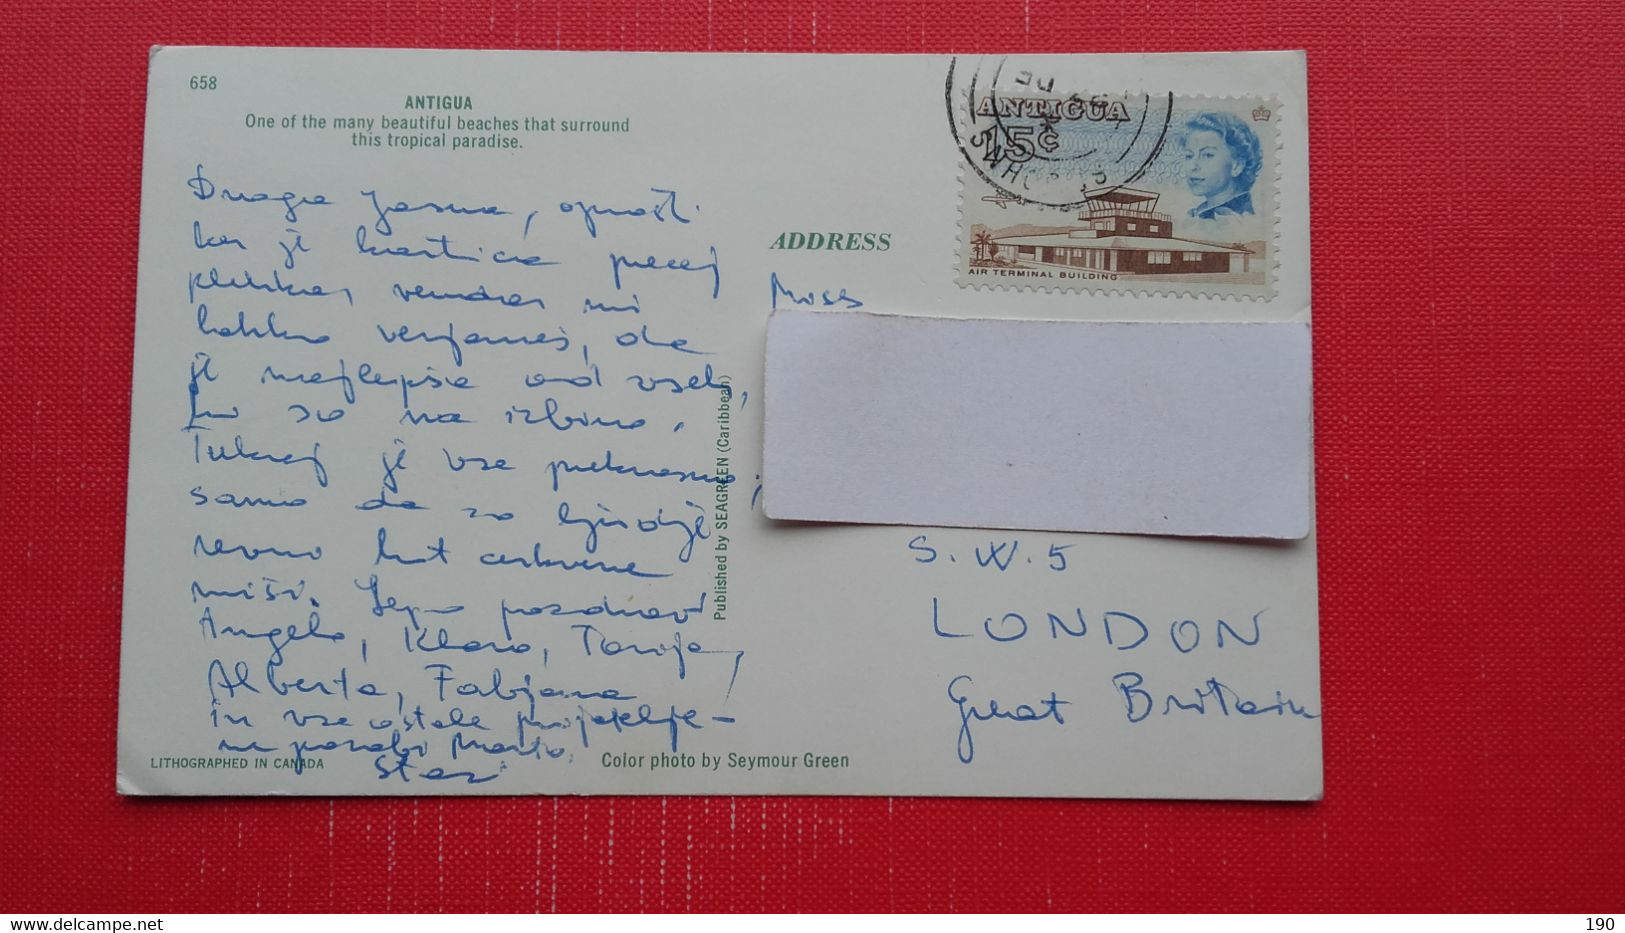 658
ANTIGUA
One of the many beautiful beaches that surround
this tropical paradise.
Draga Jasna, oprosti
ker je kartica precej
plehka, vendar mi
lahko verjameš, da
je najlepša od vseh,
ki so na izbiro.
Tukaj je vse prekrasno,
samo da so ljudje
revni kot cerkvene
miši. Lepo pozdravi
Angelo, Klaro, Tonija,
Alberta, Fabjana
in vse ostale prijatelje –
ne pozabi Mario.
Stan
ADDRESS
Miss
S.W.5
LONDON
Great Britain
Published by SEAGREEN (Caribbean)
LITHOGRAPHED IN CANADA
Color photo by Seymour Green
ANTIGUA
15¢
AIR TERMINAL BUILDING
ST JOHNS
DE
delcampe.net
mihaelo
190